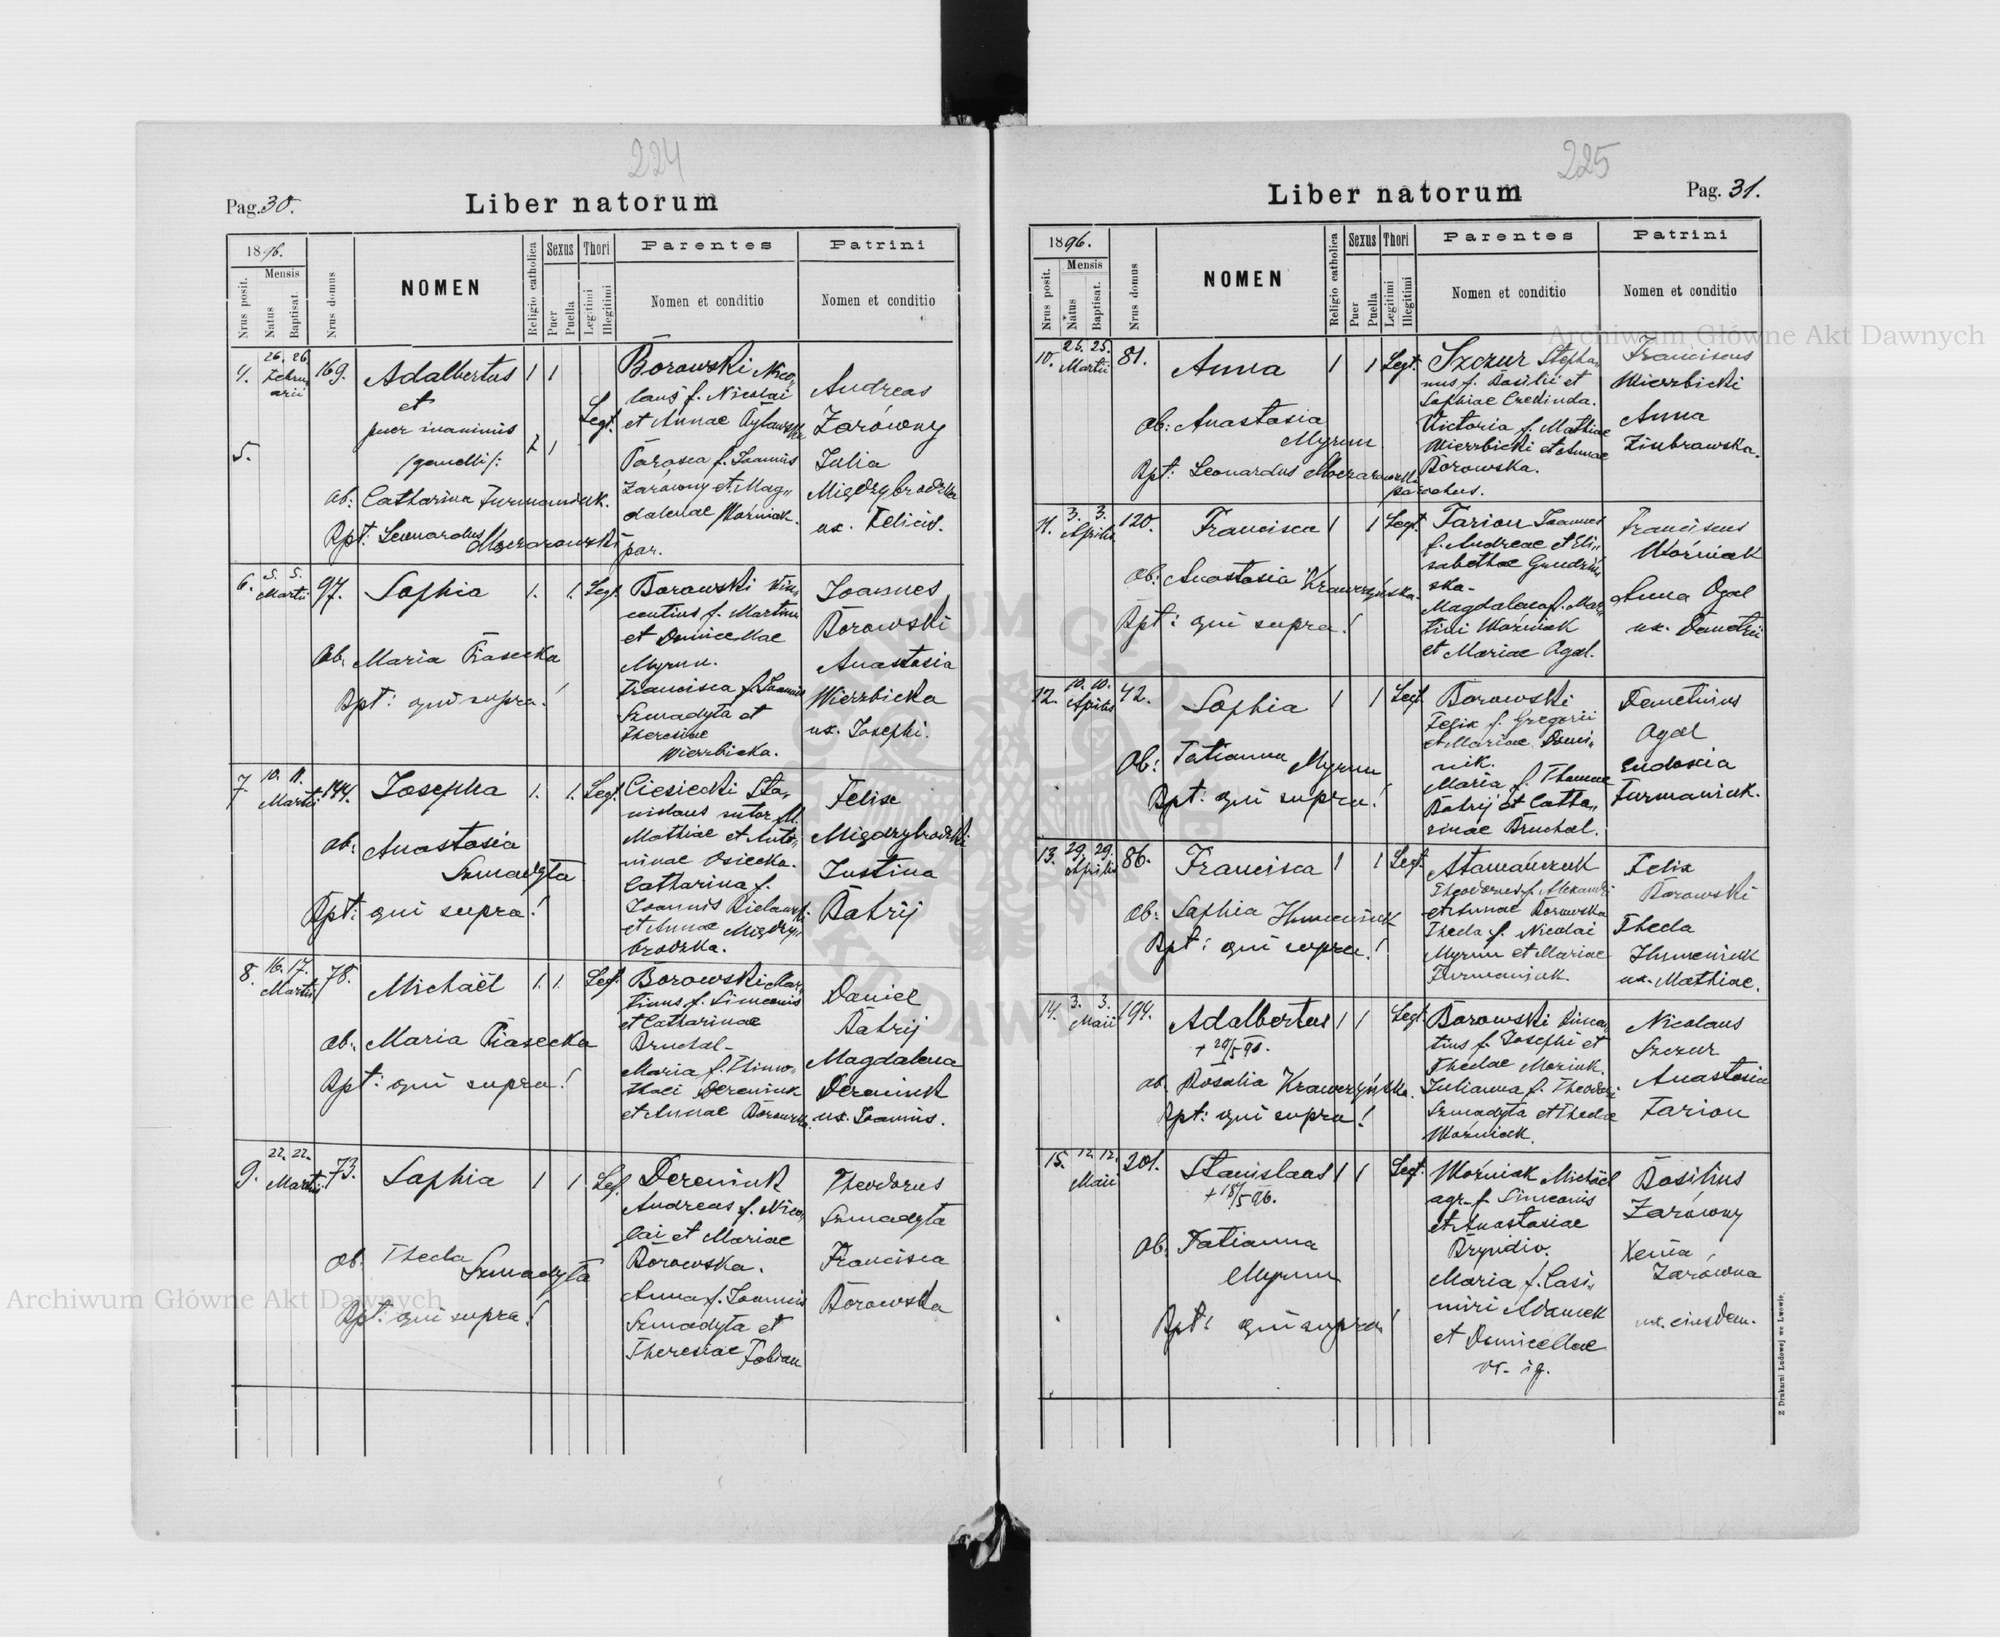 224
Pag. 30.
Liber natorum
1896.
Nrus posit.
Mensis
Natus
Baptisat.
Nrus domus
NOMEN
Religio catholica
Sexus
Puer
Puella
Thori
Legitimi
Illegitimi
Parentes
Nomen et conditio
Patrini
Nomen et conditio
4.
26. 26.
Februarii
169.
Adalbertus
et
puer inanimis
/gemelli/:
5.
ob: Catharina Furmaniuk.
Bpt: Leonardus Moczarowski
par.
1 1
Legt.
Borowski Nico„
laus f. Nicolai
et Annae Bylawska
Parasca f. Joannis
Zarówny et Mag„
dalenae Woźniak.
Andreas
Zarówny
Julia
Międzybrodzka
ux. Felicis.
6.
5. 5.
Martii
97.
Sophia
1. 1. Legt.
ob. Maria Piasecka
Bpt: qui supra!
Borowski Vin„
centius f. Martini
et Domicellae
Myrun.
Francisca f. Joannis
Szmadyta et
Theresiae
Wierzbicka.
Joannes
Borowski
Anastasia
Wierzbicka
ux. Josephi.
7
10. 11.
Martii
144.
Josepha
1. 1. Legt.
ob: Anastasia
Szmadyta
Bpt: qui supra!
Ciesiecki Sta„
nislaus sutor f.
Mathiae et Anto„
ninae Osiecka.
Catharina f.
Joannis Bielawski
et Annae Między„
brodzka.
Felix
Międzybrodzki
Justina
Batrij
8.
16. 17.
Martii
78.
Michaël
1. 1. Legt.
ob. Maria Piasecka
Bpt: qui supra!
Borowski Mar„
tinus f. Simeonis
et Catharinae
Bruchal-
Maria f. Thimo„
thei Dereniuk
et Annae Borowska.
Daniel
Batrij
Magdalena
Dereniuk
ux. Joannis.
9.
22. 22.
Martii
73.
Sophia
1 1 Legt.
ob. Thecla
Szmadyta
Bpt: qui supra!
Dereniuk
Andreas f. Nico„
lai et Mariae
Borowska.
Anna f. Joannis
Szmadyta et
Theresiae Fabian
Theodorus
Szmadyta
Francisca
Borowska
225
Liber natorum
Pag. 31.
1896.
Nrus posit.
Mensis
Natus
Baptisat.
Nrus domus
NOMEN
Religio catholica
Sexus
Puer
Puella
Thori
Legitimi
Illegitimi
Parentes
Nomen et conditio
Patrini
Nomen et conditio
10.
25. 25.
Martii
81.
Anna
1 1 Legt.
ob: Anastasia
Myrun
Bpt: Leonardus Moczarowski
parochus.
Szczur Stepha„
nus f. Basilii et
Sophiae Credinda.
Victoria f. Mathiae
Wierzbicki et Annae
Borowska.
Franciscus
Wierzbicki
Anna
Ziubrawska.
11.
3. 3.
Aprilis
120.
Francisca
1 1 Legt.
ob: Anastasia Krawczyńska.
Bpt: qui supra!
Farion Joannes
f. Andreae et Eli„
sabethae
ska-
Magdalena f. Mar„
tini Woźniak
et Mariae Ogal.
Franciscus
Woźniak
Anna Ogal
ux. Demetrii
12.
10. 10.
Aprilis
42.
Sophia
1 1 Legt
ob: Tatianna Myrun
Bpt: qui supra!
Borowski
Felix f. Gregorii
et Mariae Domi„
nik.
Maria f. Thomae
Batrij et Catha„
rinae Bruchal.
Demetrius
Ogal
Eudoxia
Furmaniuk.
13.
29. 29.
Aprilis
86.
Francisca
1 1 Legt.
ob: Sophia Humeniuk
Bpt: qui supra!
Atamańczuk
Theodorus f. Alexandri
et Annae Borowska
Thecla f. Nicolai
Myrun et Mariae
Furmaniuk.
Felix
Borowski
Thecla
Humeniuk
ux. Mathiae.
14.
3. 3.
Maii
194.
Adalbertus
+ 29/5 98.
1 1 Legt.
ob. Rosalia Krawczyńska.
Bpt: qui supra!
Borowski Vincen„
tius f. Josephi et
Theclae Moziuk.
Julianna f. Theodori
Szmadyta et Theclae
Woźniak.
Nicolaus
Szczur
Anastasia
Farion
15.
12. 12.
Maii
201.
Stanislaus
+ 18/5 96.
1 1 Legt.
ob. Tatianna
Myrun
Bpt: qui supra!
Woźniak Michaël
agr. f. Simeonis
et Anastasiae
Bryndio.
Maria f. Casi„
miri Adamek
et Domicellae
Basilius
Zarówny
Xenia
Zarówna
ux. eiusdem.
Z Drukarni Ludowej we Lwowie.
Archiwum Główne Akt Dawnych
Archiwum Główne Akt Dawnych
ARCHIWUM GŁÓWNE AKT DAWNYCH